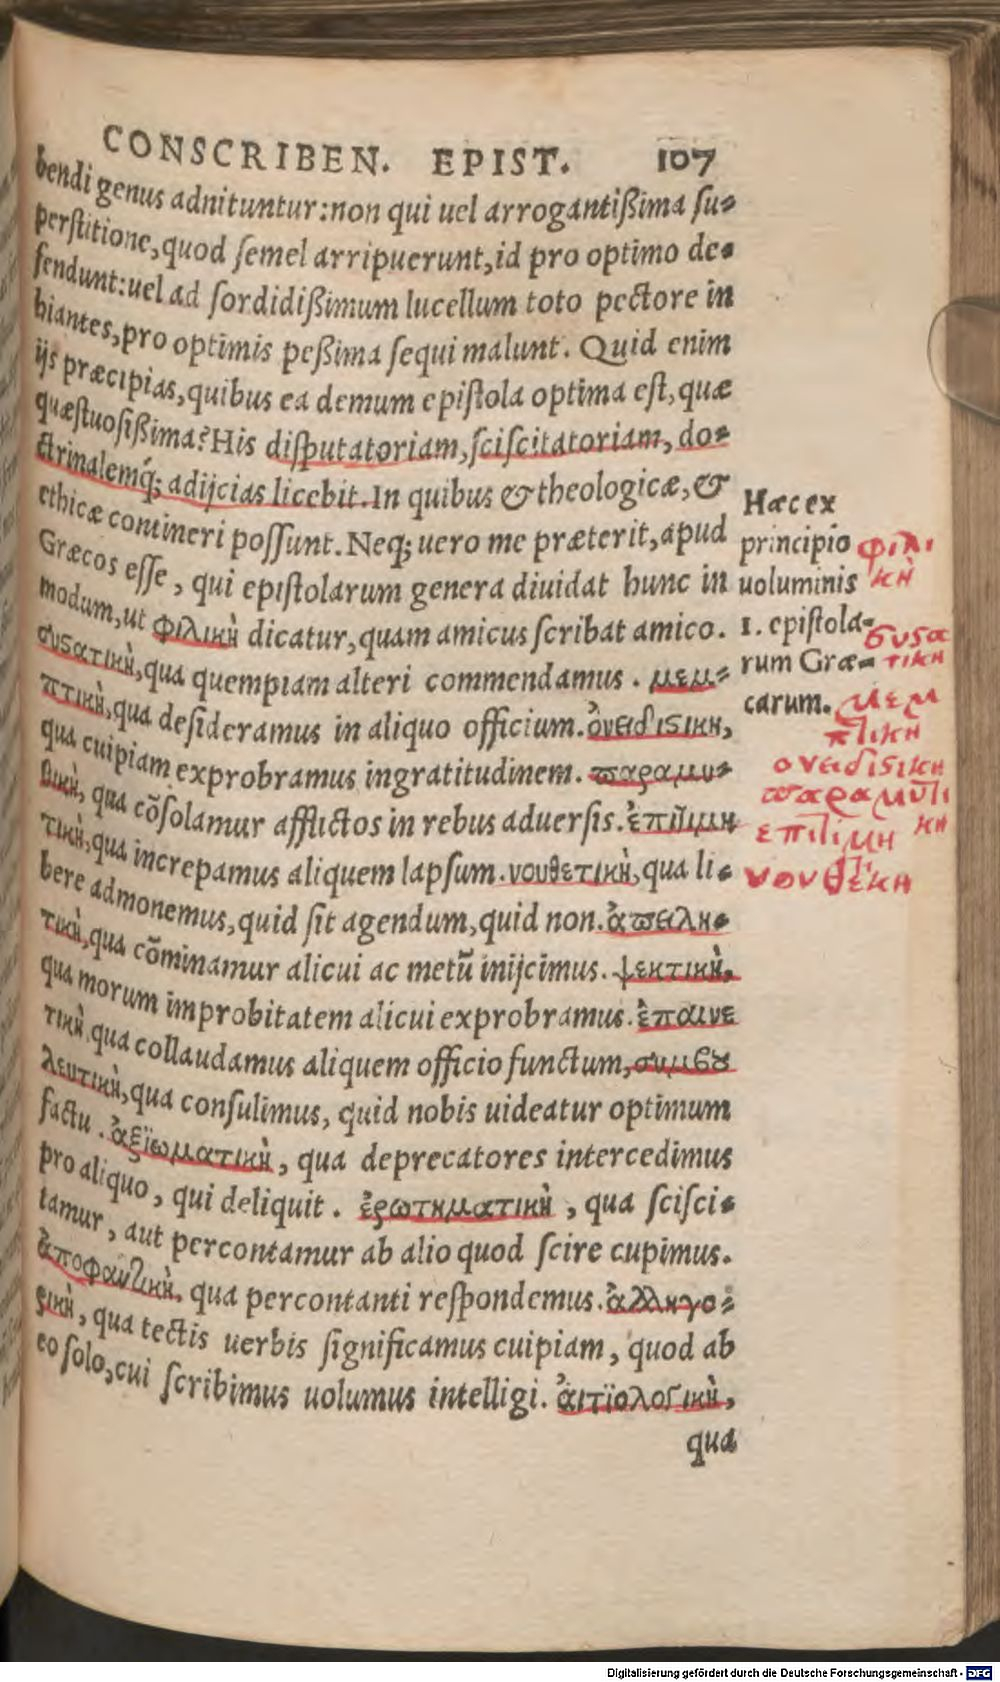 CONSCRIBEN. EPIST. 107
bendi genus adnituntur: non qui uel arrogantißima su-
perstitione, quod semel arripuerunt, id pro optimo de-
fendunt: uel ad sordidißimum lucellum toto pectore in
hiantes, pro optimis peßima sequi malunt. Quid enim
ijs præcipias, quibus ea demum epistola optima est, quæ
quæstuosißima? His disputatoriam, sciscitatoriam, do-
ctrinalemq́; adijcias licebit. In quibus & theologicæ, &
ethicæ contineri possunt. Neq; uero me præterit, apud
Græcos esse, qui epistolarum genera diuidat hunc in
modum, ut φιλικὴ dicatur, quam amicus scribat amico.
συστατικὴ, qua quempiam alteri commendamus. μεμ-
πτικὴ, qua desideramus in aliquo officium. ὀνειδιστικὴ,
qua cuipiam exprobramus ingratitudinem. παραμυ-
θικὴ, qua cõsolamur afflictos in rebus aduersis. ἐπιτιμη
τικὴ, qua increpamus aliquem lapsum. νουθετικὴ, qua li-
bere admonemus, quid sit agendum, quid non. ἀπειλη-
τικὴ, qua cõminamur alicui ac metũ inijcimus. ψεκτικὴ,
qua morum improbitatem alicui exprobramus. ἐπαινε
τικὴ qua collaudamus aliquem officio functum, συμβου
λευτικὴ, qua consulimus, quid nobis uideatur optimum
factu. ἀξϊωματικὴ, qua deprecatores intercedimus
pro aliquo, qui deliquit. ἐρωτηματικὴ, qua scisci-
tamur, aut percontamur ab alio quod scire cupimus.
ἀποφαντικὴ, qua percontanti respondemus. ἀλληγο-
ρικὴ, qua tectis uerbis significamus cuipiam, quod ab
eo solo, cui scribimus uolumus intelligi. ἀιτϊολογικὴ,
qua
Hæc ex
principio
uoluminis
1. epistola-
rum Græ-
carum.
φιλι
κὴ
συστα
τικη
μεμ
πτικη
ονειδιστικη
παραμυτι
κη
επιτιμη
τι
νουθεκη
Digitalisierung gefördert durch die Deutsche Forschungsgemeinschaft - DFG